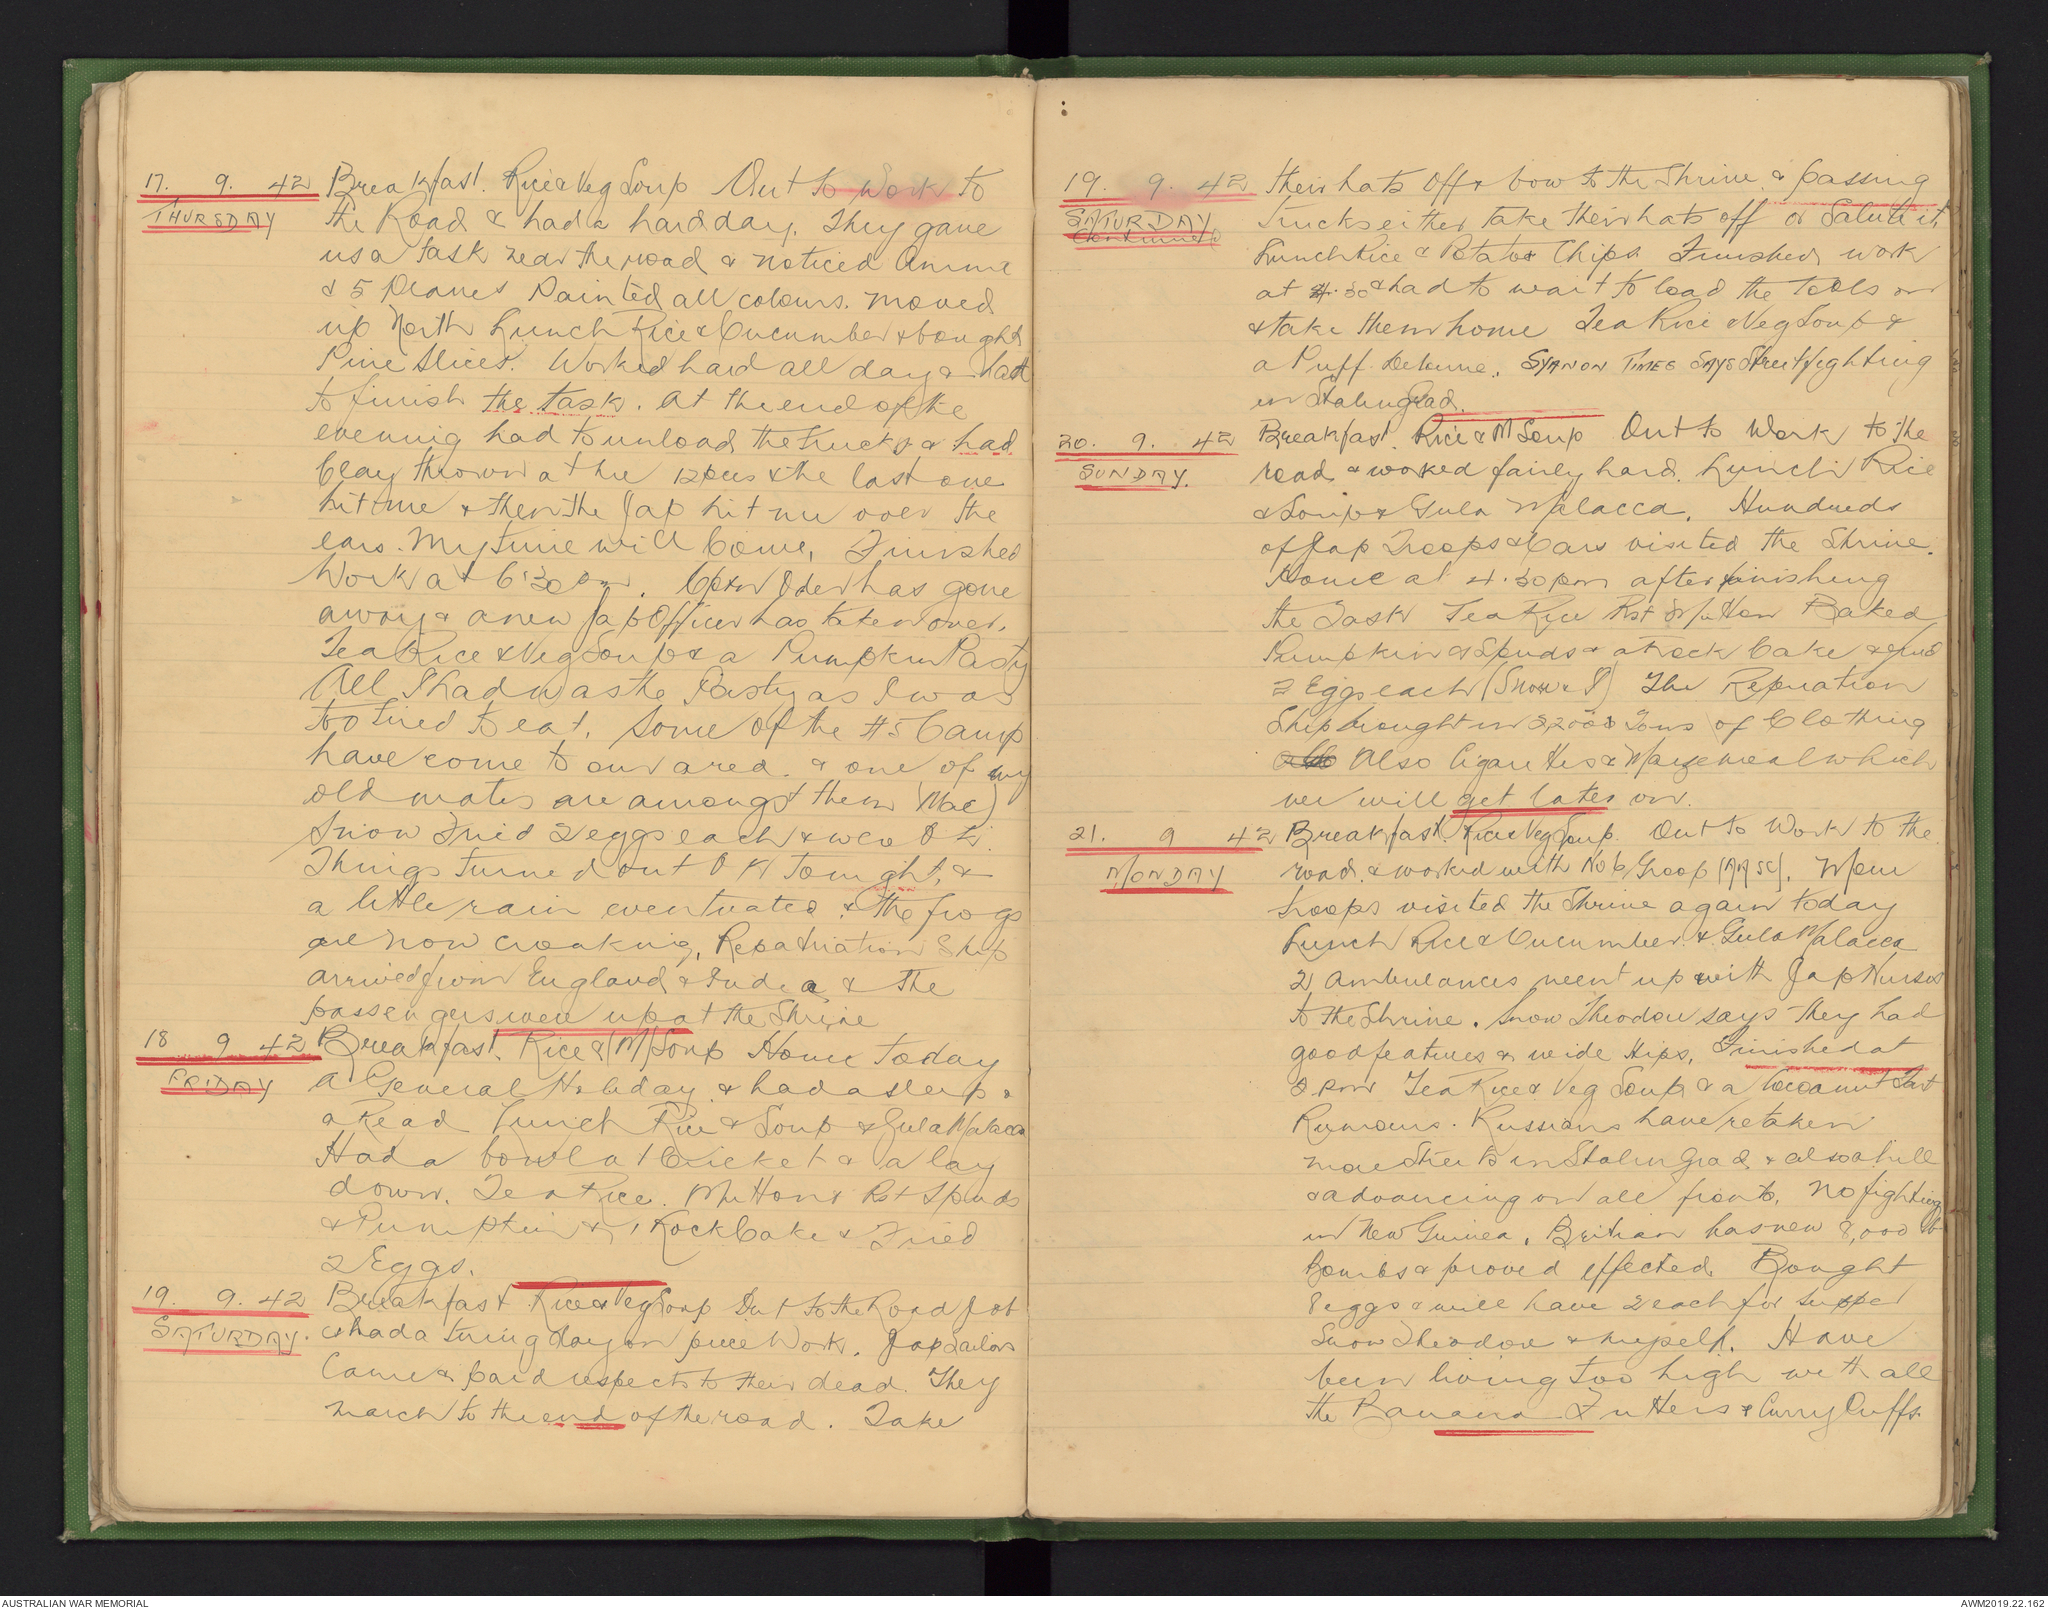 17. 9. 42 Breakfast. Rice & Veg Soup Out to Work to
THURSDAY the Road & had a hard day. They gave
us a task near the road & noticed
& 5 Planes Painted all colours. Moved
up North Lunch Rice & Cucumber & bought
Pine Slices. Worked hard all day & had
to finish the task. At the end of the
evening had to unload the trucks & had
Clay thrown at me 12 pces & the last one
hit me & then the Jap hit me over the
ears. My time will Come. Finished
Work at 6.30 pm. Capt Oder has gone
away & a new Jap Officer has taken over.
Tea Rice & Veg Soup & a Pumpkin Pasty
All I had was the Pasty as I was
too tired to eat. Some of the #5 Camp
have come to our area & one of my
old mates are amongst them (Mac)
Snow Fried 2 eggs each & were O K.
Things turned out O K tonight, &
a little rain eventuated & the frogs
are now croaking. Repatriation Ship
arrived from England & India & the
passengers were up at the Shrine
18 9 42 Breakfast. Rice & (M) Soup Home Today
FRIDAY A General Holiday & had a sleep &
a Read Lunch Rice & Soup & Gula Malacca
Had a bowl at Cricket & a lay
down. Tea Rice. Mutton & Rst Spuds
& Pumpkin & 1 Rock Cake & Fried
2 Eggs.
19. 9. 42 Breakfast Rice & Veg Soup Out to the Road Job
SATURDAY. & had a tiring day on piece Work. Jap Sailors
Came & paid respects to their dead. They
march to the end of the road. Take
19. 9. 42 their hats off & bow to the Shrine & passing
SATURDAY trucks either take their hats off or Salute it.
Continued
Lunch Rice & Potatoe Chips Finished work
at 4.30 & had to wait to load the Tools on
& take them home Tea Rice & Veg Soup &
a Puff Delume. SYANON TIMES SAYS Street fighting
in Stalingrad.
20. 9. 42 Breakfast. Rice & M Soup Out to Work to the
SUNDAY. road & worked fairly hard. Lunch Rice
& Soup & Gula Malacca. Hundreds
of Jap Troops & Cars visited the Shrine.
Home at 4.30pm after finishing
the Task Tea Rice Rst Mutton Baked
Pumpkin & Spuds & a rock Cake & fried
2 Eggs each (Snow & I) The Repriation
Ship brought in 22000 Tons of Clothing
Also Cigarettes & Maizemeal which
we will get later on.
21. 9 42 Breakfast Rice & Veg Soup. Out to Work to the
MONDAY road & worked with No 6 Group (AASC). More
troops visited the Shrine again today
Lunch Rice & Cucumber & Gula Malacca
2 Ambulances went up with Jap Nurses
to the Shrine. Snow Theodore says they had
good features & wide Hips. Finished at
5 pm Tea Rice & Veg Soup & a Cocoanut Tart
Rumours. Russians have retaken
more Streets in Stalingrad & also a hill
& advancing on all fronts. No fighting
in New Guinea. Britian has new 8,000 lb
Bombs & proved effected. Bought
8 eggs & will have 2 each for supper
Snow Theodore & myself. Have
been living too high with all
the Banana Fritters & Curry Puffs.
AUSTRALIAN WAR MEMORIAL
AWM2019.22.162